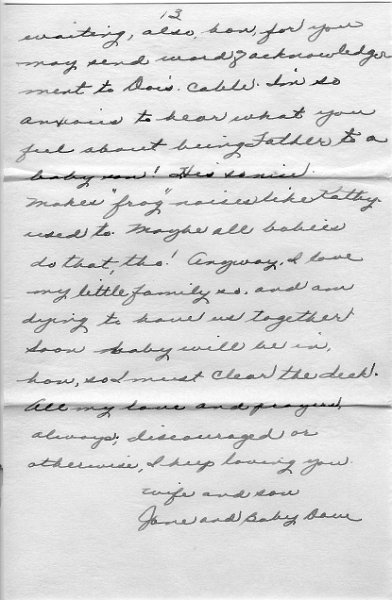 13
waiting, also, hon, for you
may send word of acknowledge-
ment to Dois. cable. I'm so
anxious to hear what you
feel about being Father to a
baby son! His
makes "frog" noises like Kathy
used to. Maybe all babies
do that, tho! Anyway, I love
my little family so, and am
dying to have us together
soon baby will be in,
hon, so I must clear the deck.
All my love and prayers,
always, discouraged or
otherwise, I keep loving you.
wife and son
Jane and Baby Dave